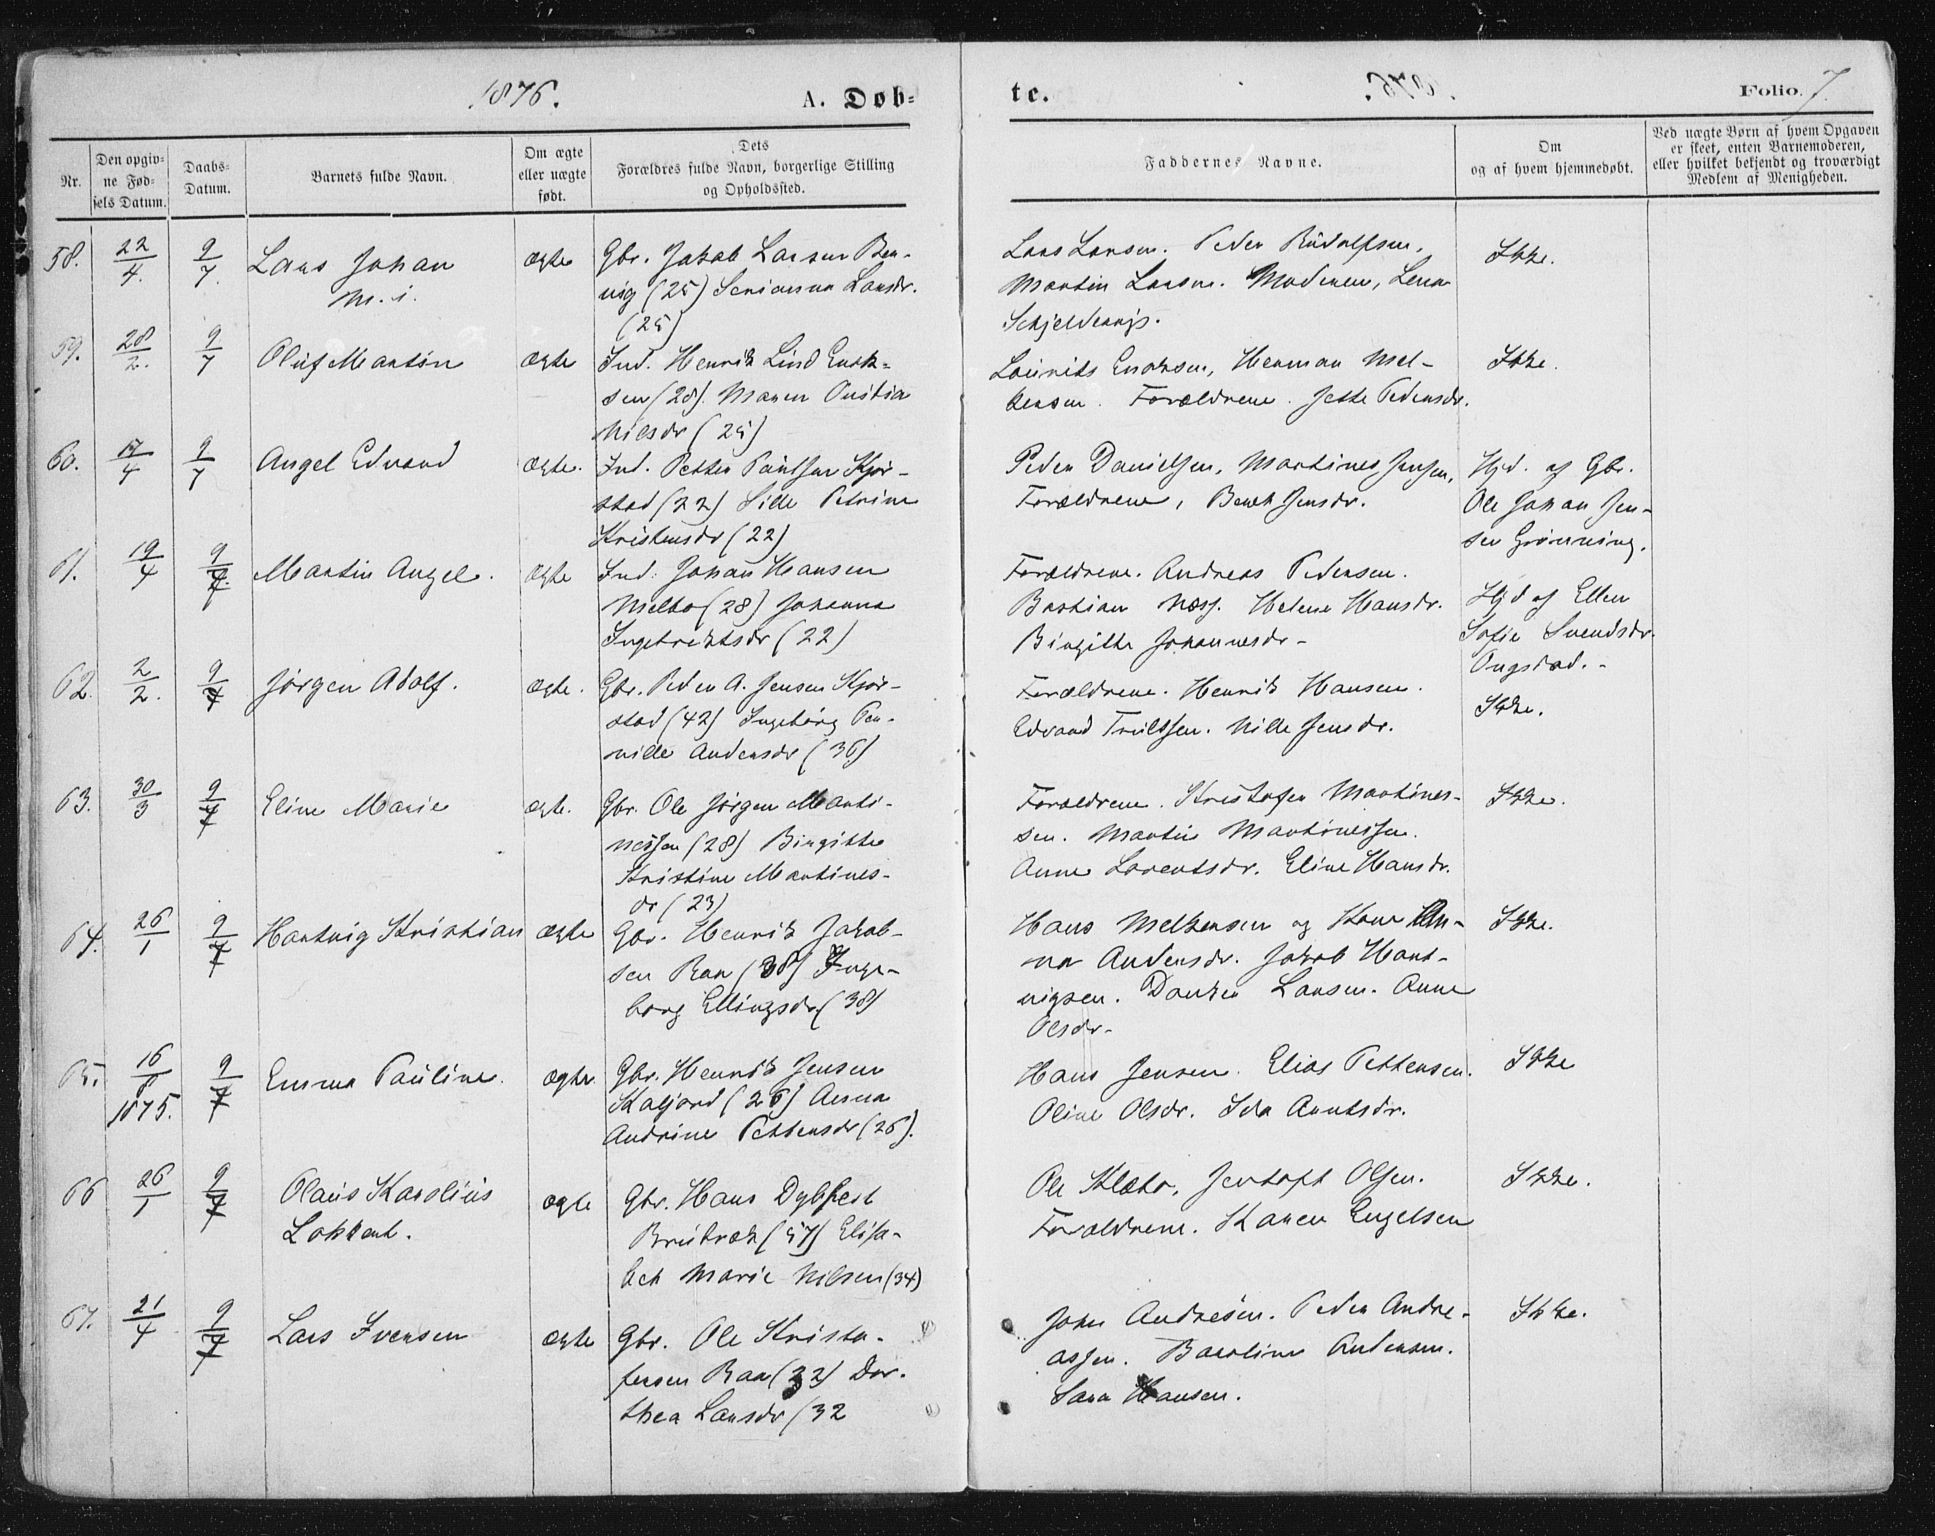 1876.
A. Døb-
te.
Folio. 7.
Nr.
Den opgiv-
ne Fød-
sels Datum.
Daabs-
Datum.
Barnets fulde Navn.
Om ægte
eller uægte
født.
Dets
Forældres fulde Navn, borgerlige Stilling
og Opholdssted.
Faddernes Navne.
Om
og af hvem hjemmedøbt.
Ved uægte Børn af hvem Opgaven
er skeet, enten Barnemoderen,
eller hvilket bekjendt og troværdigt
Medlem af Menigheden.
58. 22/4. 9/7. Lars Johan ægte Gbr. Jakob Larsen
(25) Larsdr.
(25)
Lars Larsen. Peder Rudolfsen,
Martin Larsen. Moderen, Lena
Ikke.
59. 28/2. 9/7 Oluf Martin ægte Ind. Henrik Lind
sen (28). Maren
Nilsdr (25)
Laurits Henman Mel-
kersen. Forældrene. Jette Pedersdr.
Ikke.
60. 17/4 9/7 Angel Edvard ægte. Ind. Petter Paulsen Kjør-
stad (22) Sille Petrine
Kristensdr (22)
Peder Danielsen, Martines Jensen,
Forældrene, Jensdr.
Hjd. af Gbr.
Ole Johan Jen-
sen Grønning.
61. 19/4 9/7. Martin Angel. ægte Ind. Johan Hansen
Melbo (28) Johanna
Ingebriktsdr (22)
Forældrene. Andreas Pedersen.
Bastian Næss. Helene Hansdr.
Birgitte Johannesdr-
Hjd af Ellen
Sofie Svendsdr.
Ongstad.-
62. 2/2. 9/7 Jørgen Adolf. ægte. Gbr. Peder A. Jensen Kjør-
stad (42) Ingeborg Per-
nille Andersdr (36)
Forældrene. Henrik Hansen.
Edvard Trulssen. Nille Jensdr.
Ikke.
63. 30/3 9/7 Eline Marie ægte. Gbr. Ole Jørgen Marti-
nessen (28) Birgitte
Kristine Martines-
dr (23)
Forældrene. Kristofer Martines-
sen. Martin Martinessen.
Anne Lorentsdr. Eline Hansdr.
Ikke.
64. 26/1 9/7 Hartvig Kristian ægte Gbr. Henrik Jakob-
sen Raa (38) Inge-
borg Ellingsdr (38)
Hans Melkersen og Kone An-
na Andersdr. Jakob Hart-
vigsen. Larsen. Anne
Olsdr-
Ikke.
65. 16/8 9/7 Emma Pauline. ægte Gbr. Henrik Jensen
1875.
Kaljord (26) Anna
Andrine Pettersdr (26).
Hans Jensen. Elias Pettersen.
Oline Olsdr. Ida Arntsdr.
Ikke
66 26/1 9/7 Olaus Karolius ægte Gbr. Hans Dybfest
Lokkert.
(57) Elisa-
bet Marie Nilsen (34)
Ole Klæbo, Jentoft Olsen.
Forældrene. Karen Engelsen
Ikke.
67. 21/4 9/7 Lars Iversen ægte Gbr. Ole Kristo-
fersen Raa (32) Dor-
thea Larsdr (32
John Andresen. Peder Andre-
assen. Andersen.
Sara Hansen.
Ikke.